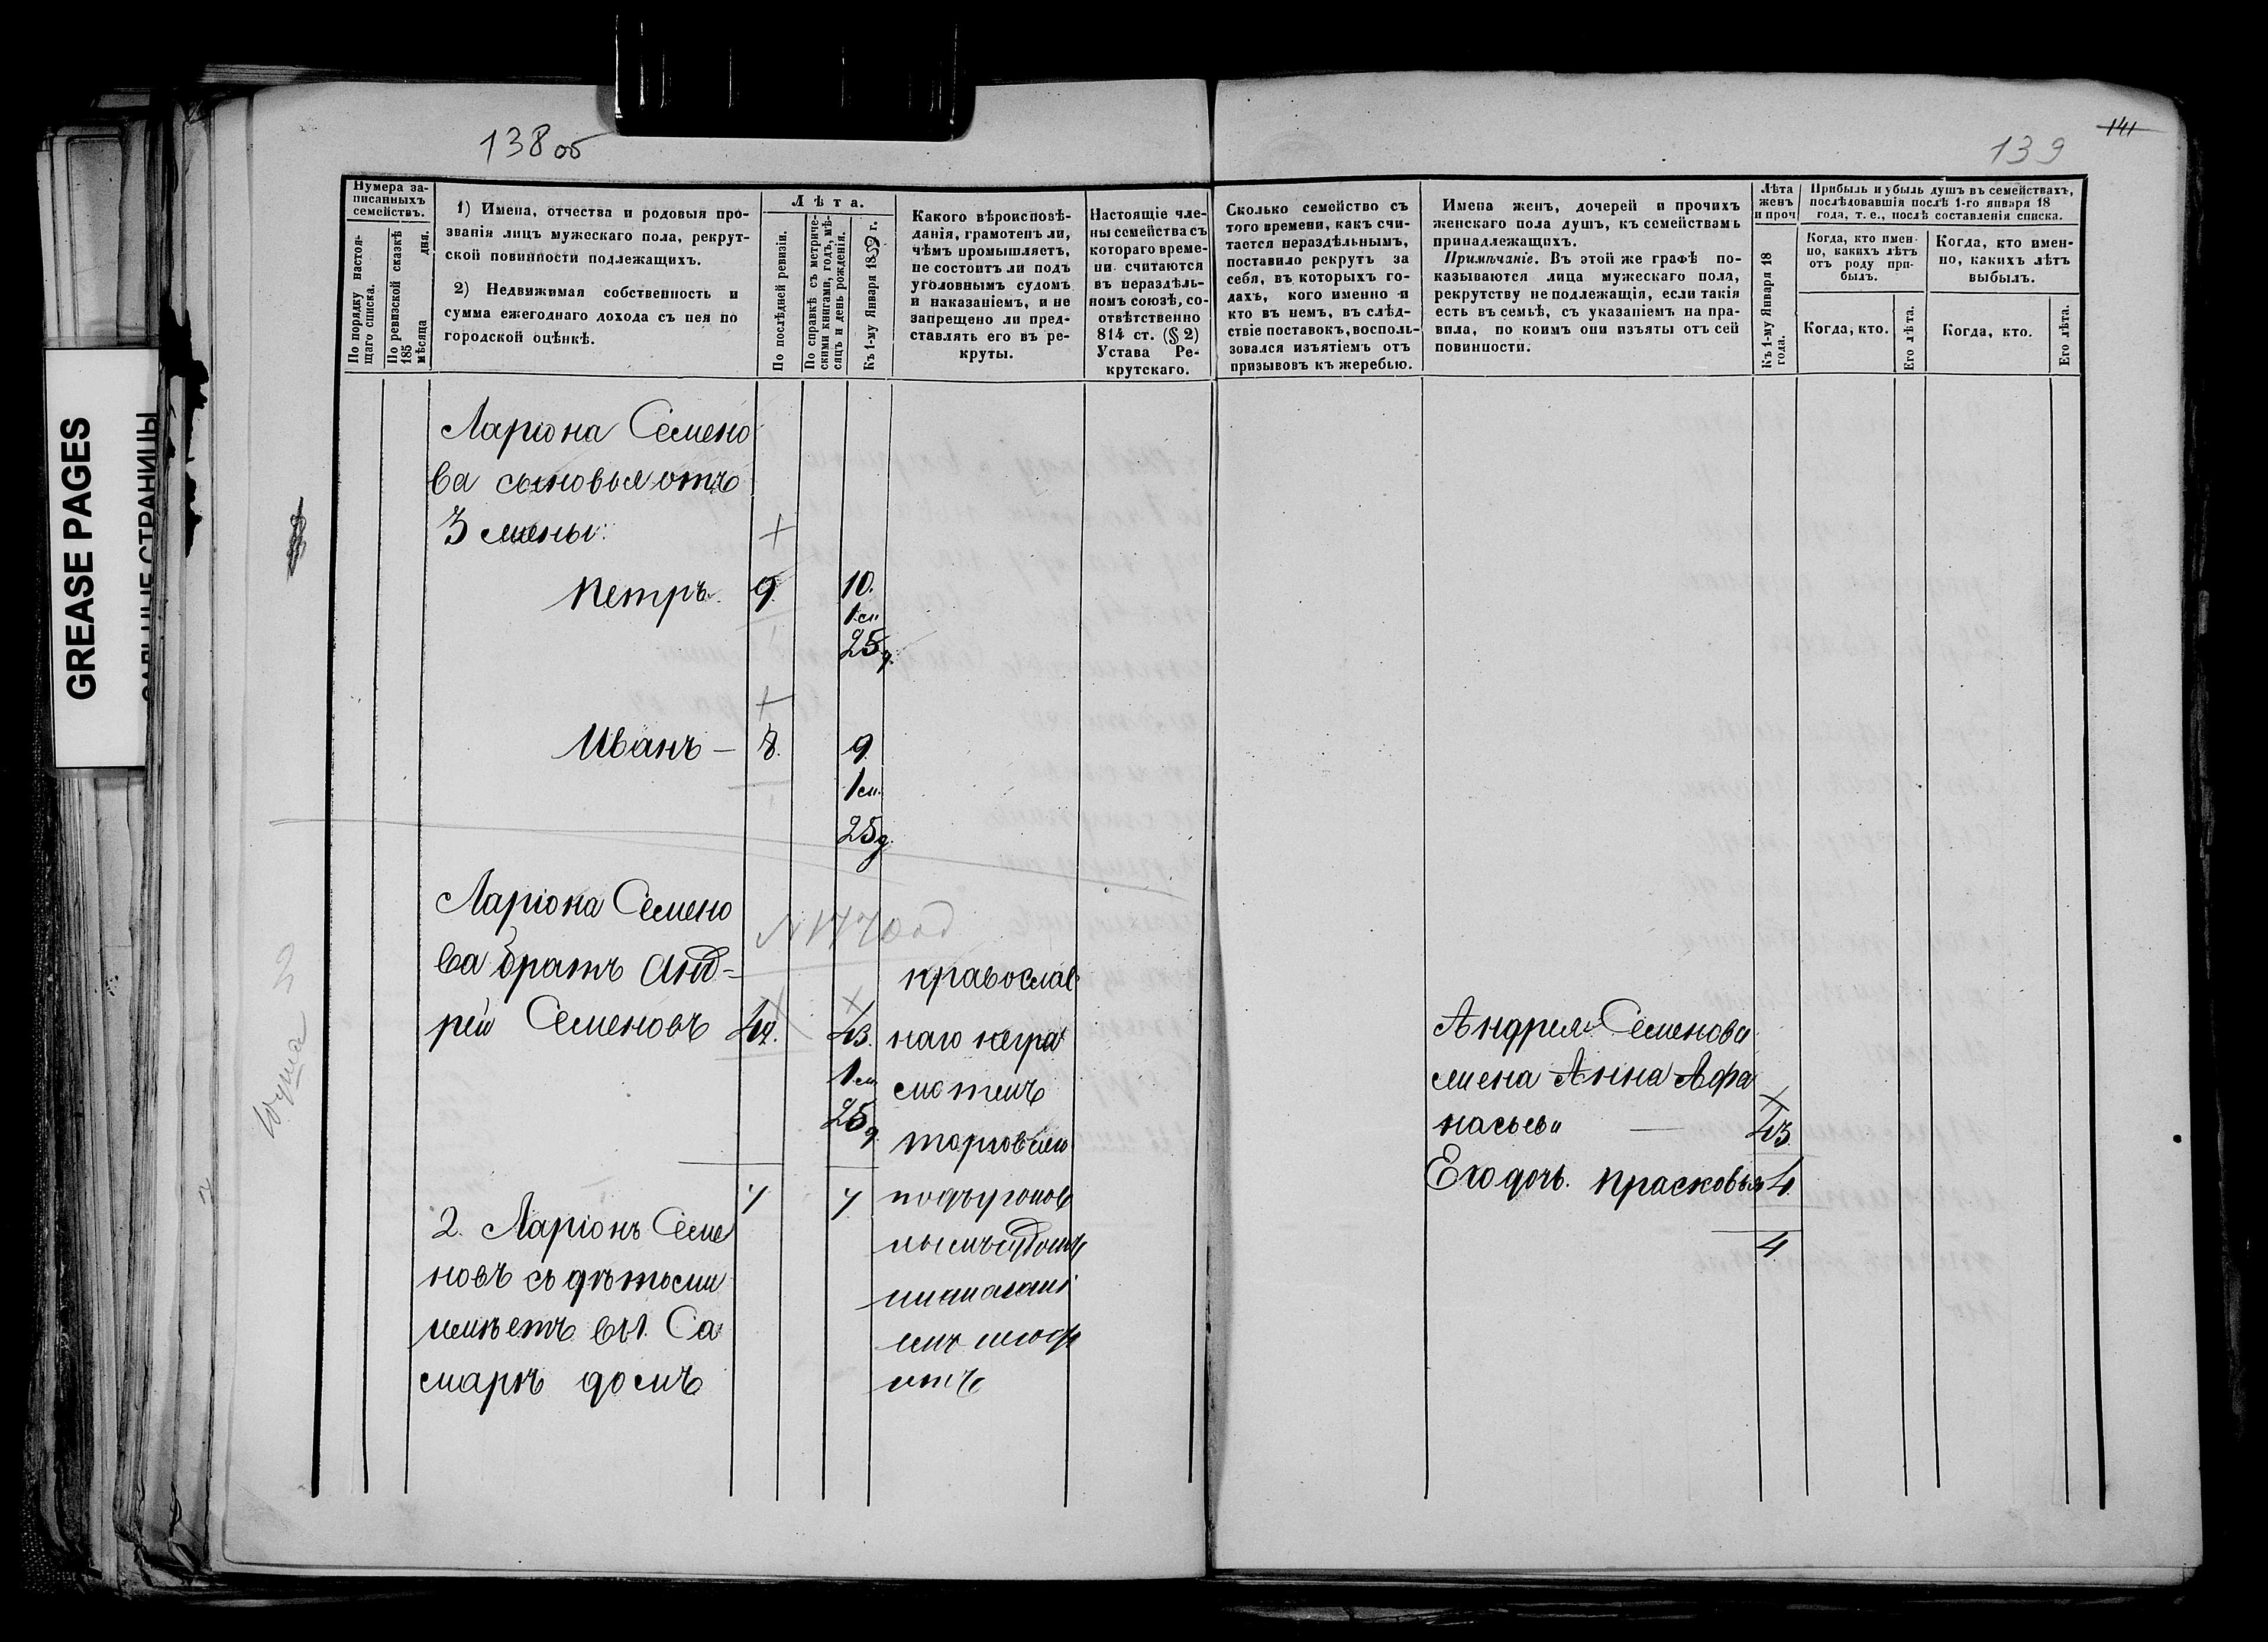 GREASE PAGES
138 об
Нумера записанныхъ семействъ.
По порядку настоящаго списка.
По ревизской сказкѣ 185 мѣсяца дня.
1) Имена, отчества и родовыя про-
званія лицъ мужескаго пола, рекрут-
ской повинности подлежащихъ.
2) Недвижимая собственность и
сумма ежегоднаго дохода съ нея по
городской оцѣнкѣ.
Лѣта.
По послѣдней ревизіи.
По справкѣ съ метриче-
скими книгами, годъ, мѣ-
сяцъ и день рожденія.
Къ 1-му Января 1859 г.
Какого вѣроисповѣ-
данія, грамотенъ ли,
чѣмъ промышляетъ,
не состоитъ ли подъ
уголовнымъ судомъ
и наказаніемъ, и не
запрещено ли пред-
ставлять его въ ре-
круты.
Настоящіе чле-
ны семейства съ
котораго време-
ни считаются
въ нераздѣль-
номъ союзѣ, со-
отвѣтственно
814 ст. (§ 2)
Устава Ре-
крутскаго.
Ларіона Семено
ва сыновья отъ
3 жены:
Петръ 9 10.
1 м
25 д.
Иванъ — 8. 9.
1 м.
25 д.
Ларіона Семено
ва братъ Анд-
рей Семеновъ 42. 43.
1 м
25 д.
православ
наго негра
мотенъ
торговлею
подъ уголов
нымъ судомъ
7 7
2. Ларіонъ Семе
новъ съ дѣтьми
имѣетъ въ г. Са
марѣ домъ
139
141
Сколько семейство съ
того времени, какъ счи-
тается нераздѣльнымъ,
поставило рекрутъ за
себя, въ которыхъ го-
дахъ, кого именно и
кто въ немъ, въ слѣд-
ствіе поставокъ, восполь-
зовался изъятіемъ отъ
призывовъ къ жеребью.
Имена женъ, дочерей и прочихъ
женскаго пола душъ, къ семействамъ
принадлежащихъ.
Примѣчаніе. Въ этой же графѣ по-
казываются лица мужескаго пола,
рекрутству не подлежащія, если такія
есть въ семьѣ, съ указаніемъ на пра-
вила, по коимъ они изъяты отъ сей
повинности.
Лѣта
женъ
и проч
Къ 1-му Января 18
года.
Прибыль и убыль душъ въ семействахъ,
послѣдовавшія послѣ 1-го января 18
года, т. е., послѣ составленія списка.
Когда, кто имен-
но, какихъ лѣтъ
отъ роду при-
былъ.
Когда, кто имен-
но, какихъ лѣтъ
выбылъ.
Когда, кто.
Его лѣта.
Когда, кто.
Его лѣта.
Андрея Семенова
жена Анна Афа
насьева — 43.
Его дочь. Прасковья 4.
4